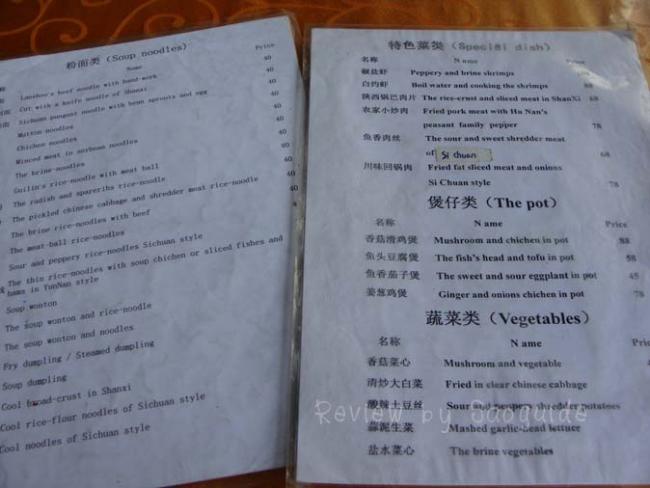 粉面类（Soup noodles）
Name Price
Lanzhou's beef noodle with hand-work 40
Cut with a knife noodle of Shanxi 40
Sichuan pungent noodle with bean sprouts and egg 40
Mutton noodles 40
Chicken noodles 40
Minced meat in soybean noodles 40
The brine-noodles 40
Guilin's rice-noodle with meat ball 40
The radish and spareribs rice-noodle 40
The pickled chinese cabbage and shredder meat rice-noodle 40
The brine rice-noodles with beef
The meat-ball rice-noodles
Sour and peppery rice-noodles Sichuan style
The thin rice-noodles with soup chichen or sliced fishes and
hams in YunNan style
Soup wonton
The soup wonton and rice-noodle
The soup wonton and noodles
Fry dumpling / Steamed dumpling
Soup dumpling
Cool broad-crust in Shanxi
Cool rice-flour noodles of Sichuan style
Cool noodles of Sichuan style
特色菜类（Special dish）
名称 N ame Price
椒盐虾 Peppery and brine shrimps
白灼虾 Boil water and cooking the shrimps 88
陕西锅巴肉片 The rice-crust and sliced meat in ShanXi 68
农家小炒肉 Fried pork meat with Hu Nan's
peasant family pepper 78
鱼香肉丝 The sour and sweet shredder meat
of Si chuan 68
川味回锅肉 Fried fat sliced meat and onions
Si Chuan style 78
煲仔类（The pot）
名称 N ame Price
香菇清鸡煲 Mushroom and chichen in pot 88
鱼头豆腐煲 The fish's head and tofu in pot 58
鱼香茄子煲 The sweet and sour eggplant in pot 45
姜葱鸡煲 Ginger and onions chichen in pot 78
蔬菜类（Vegetables）
名称 N ame
香菇菜心 Mushroom and vegetable
清炒大白菜 Fried in clear chinese cabbage
酸辣土豆丝 Sour and peppery shredder potatoes
蒜泥生菜 Mashed garlic-head lettuce
盐水菜心 The brine vegetables
Review by Gaoguide